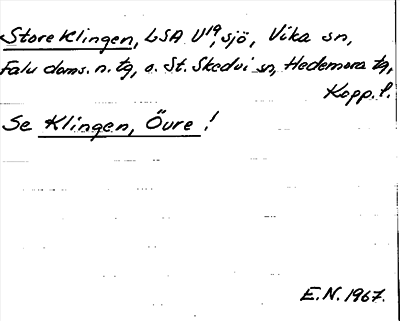 Store Klingen, LSA U19, sjö, Vika sn,
Falu doms. n. tg, o. St. Skedvi sn, Hedemora tg,
Kopp. l.
Se Klingen, Övre!
E.N. 1967.